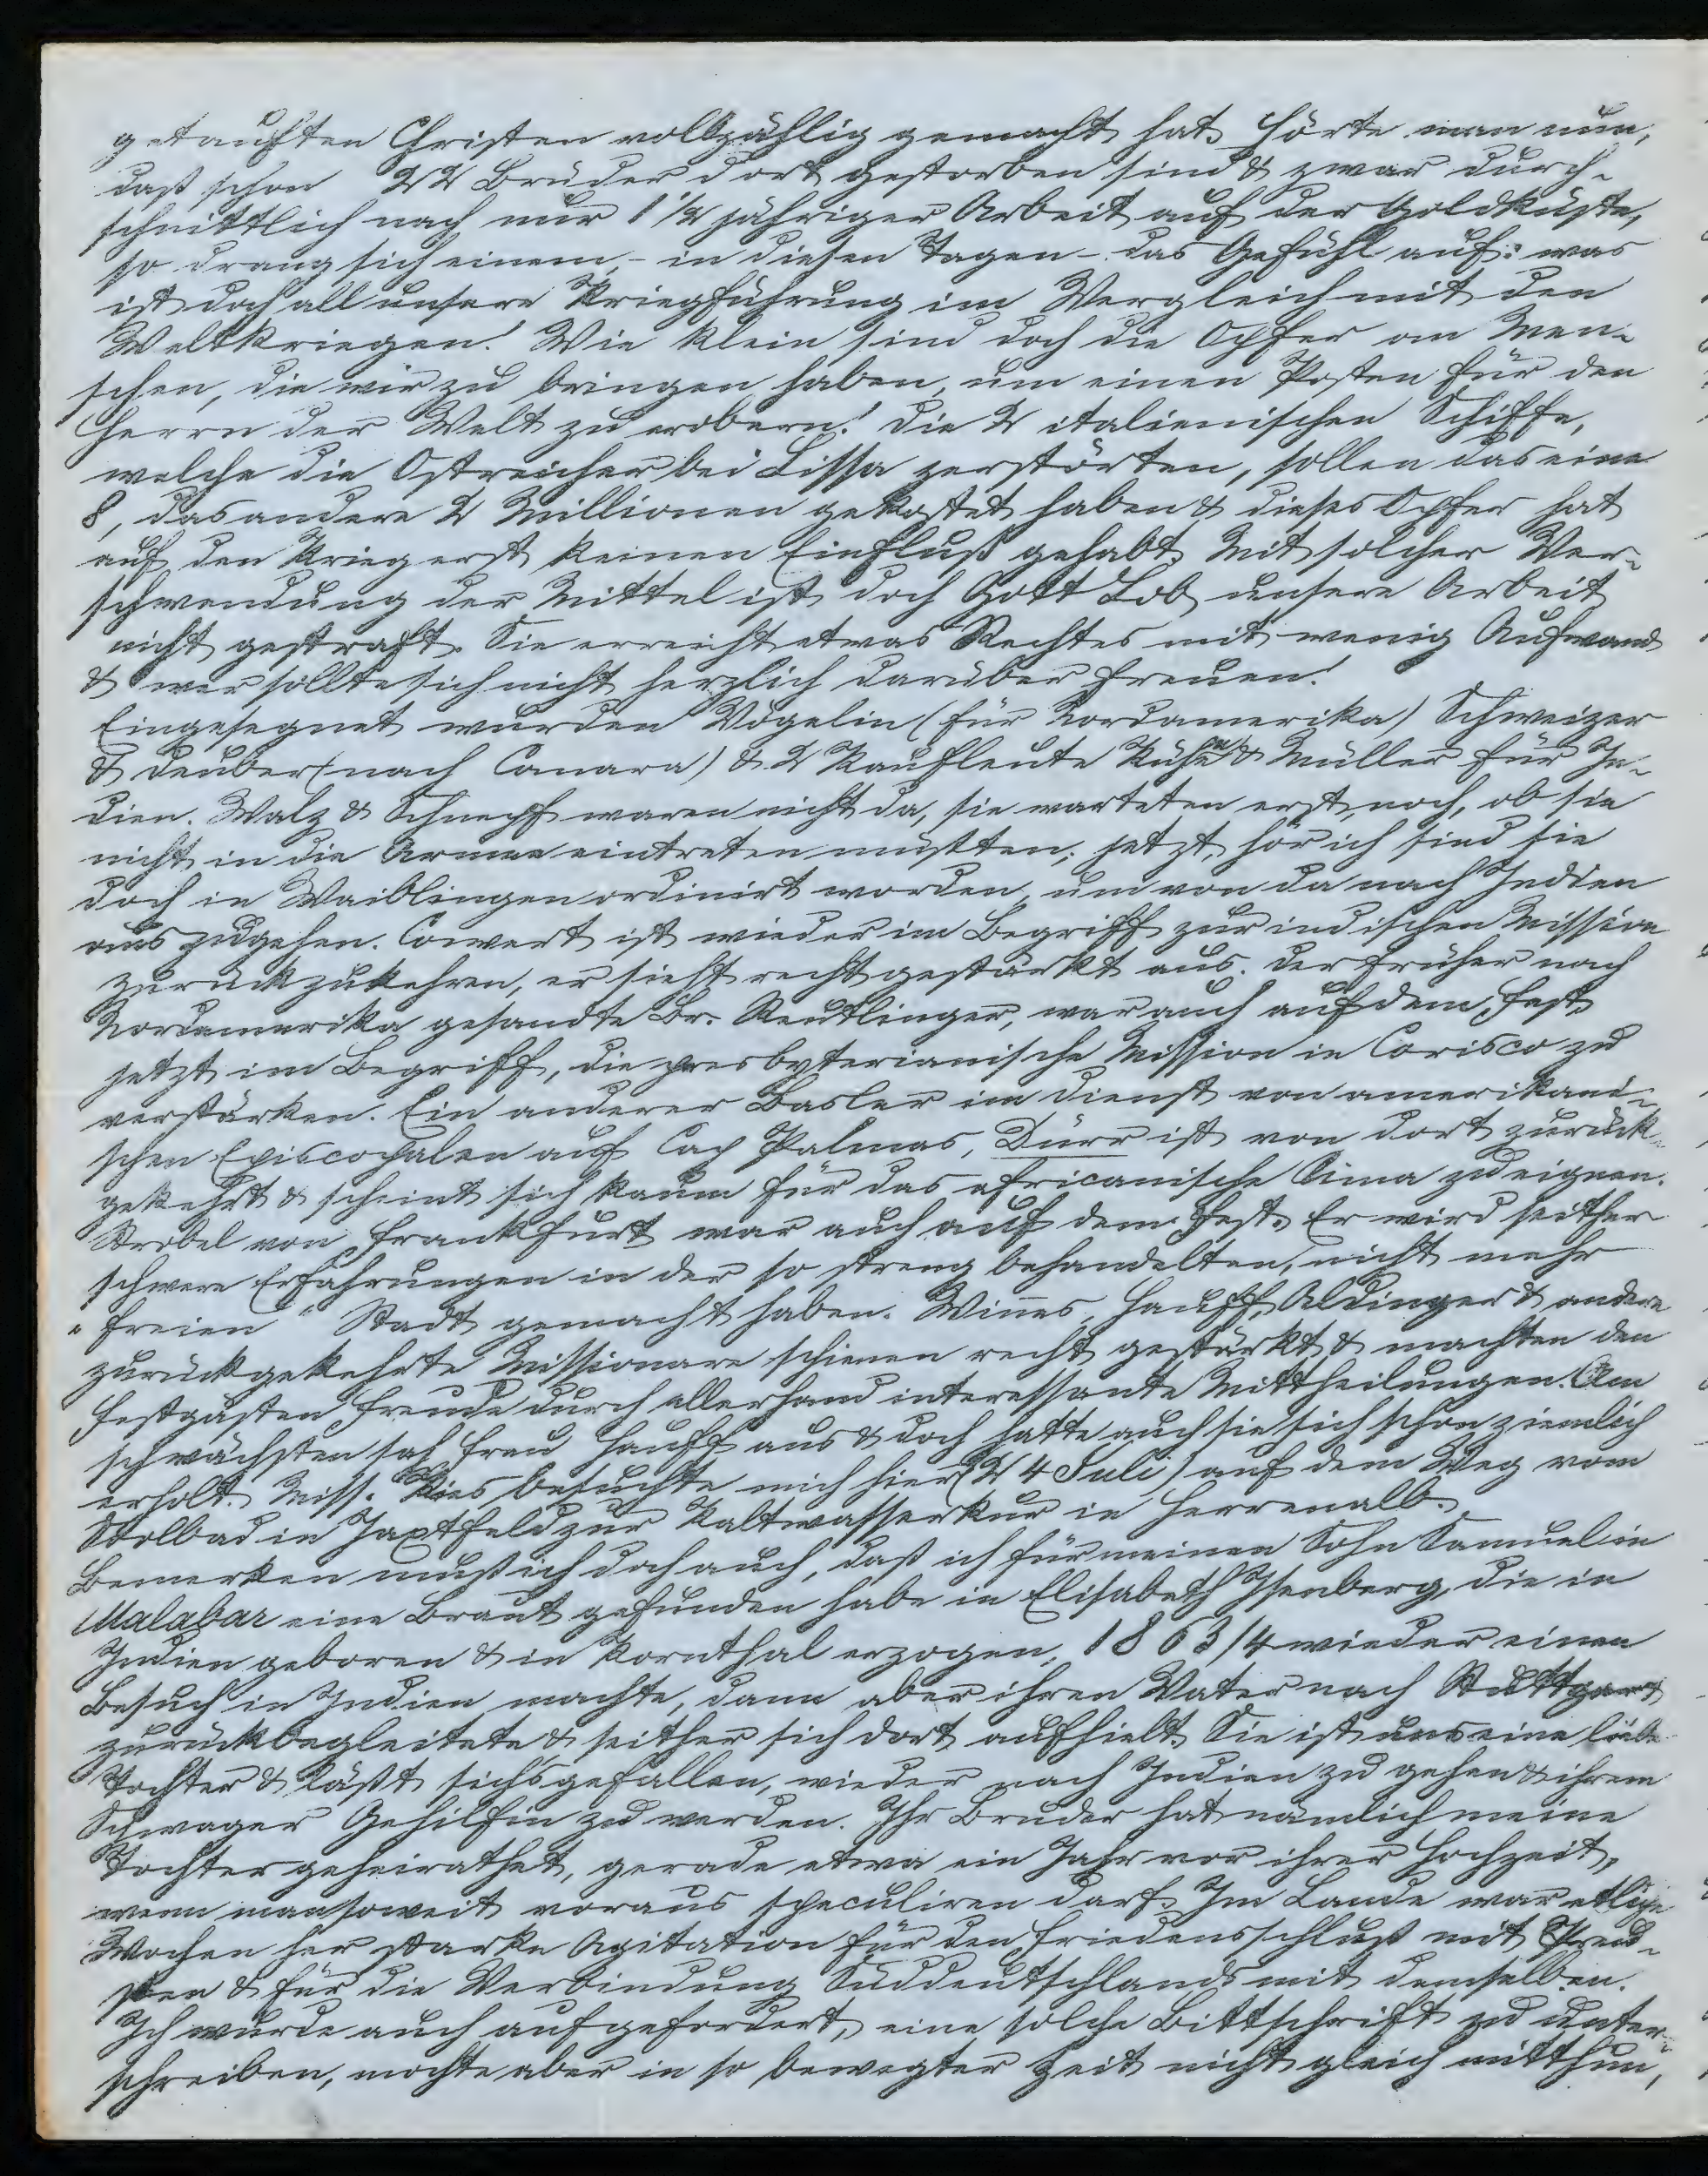 getauften Christen vollzählig gemacht hat. Hörte man nun,
daß schon 22 Brüder dort gestorben sind & zwar durch-
schnittlich nach nur 1 1/2 jähriger Arbeit auf der Goldküste,
so drang sich einem - in diesen Tagen - das Gefühl auf: was
ist doch all unsere Kriegführung im Vergleich mit den
Weltkriegen! Wie klein sind doch die Opfer an Men-
schen, die wir zu bringen haben, um einen Posten für den
Herrn der Welt zu erobern! Die 2 italienischen Schiffe,
welche die Ostreicher bei Lissa zerstörten, sollen das eine
8, das andere 2 Millionen gekostet haben & dieses Opfer hat
auf den Krieg erst keinen Einfluß gehabt. Mit solcher Ver-
schwendung der Mittel ist doch Gott Lob unsere Arbeit
nicht gestraft. Sie erreicht etwas Rechtes mit wenig Aufwand
& wer sollte sich nicht herzlich darüber freuen!
Eingesegnet wurden Vögelin (für Nordamerika) Schweizer
& Deuber (nach Canara) & 2 Kaufleute Kühn & Müller für In-
dien. Walz & Schnepf waren nicht da, sie warteten erst noch, ob sie
nicht in die Armee eintreten mußten; jetzt, hör ich sind sie
doch in Waiblingen ordinirt worden, um von da nach Indien
auszugehen. Convert ist wieder im Begriff zur indischen Mission
zurückzukehren, er sieht recht gestärkt aus. Der früher nach
Nordamerika gesandte Br. Reutlinger, war auch auf dem Fest,
jetzt im Begriff, die presbyterianische Mission in Corisco zu
verstärken. Ein anderer Basler im Dienst von amerikani-
schen Episcopalen auf Cap Palmas, Dürr ist von dort zurück-
gekehrt & scheint sich kaum für das africanische Clima zu eignen.
Strobel von Frankfurt war auch auf dem Fest. Er wird seither
schwere Erfahrungen in der so streng behandelten, nicht mehr
"freien" Stadt gemacht haben. Winnes, Hauff, Aldinger & andere
zurückgekehrte Missionare schienen recht gestärkt & machten den
Festgästen Freude durch allerhand interessante Mittheilungen. Am
schwächsten sah Frau Hauff aus & doch hatte auch sie sich schon ziemlich
erholt. Miss. Kies besuchte mich hier (24 Juli) auf dem Weg vom
Soolbad in Jaxtfeld zur Kaltwasserkur in Herrenalb.
Bemerken muß ich doch auch, daß ich für meinen Sohn Samuel in
Malabar eine Braut gefunden habe in Elisabeth Isenberg, die in
Indien geboren & in Kornthal erzogen, 1863/4 wieder einen
Besuch in Indien machte, dann aber ihren Vater nach Stuttgart
zurückbegleitete & seither sich dort aufhielt. Sie ist uns eine liebe
Tochter & läßt sichs gefallen, wieder nach Indien zu gehen & ihrem
Schwager Gehilfin zu werden. Ihr Bruder hat nämlich meine
Tochter geheirathet, gerade etwa ein Jahr vor ihrer Hochzeit,
wenn man soweit voraus speculiren darf. Im Lande war etliche
Wochen her starke Agitation für den Friedensschluß mit Preu-
ßen & für die Verbindung Süddeutschlands mit demselben.
Ich wurde auch aufgefordert, eine solche Bittschrift zu unter-
schreiben, mochte aber in so bewegter Zeit nicht gleich mitthun,